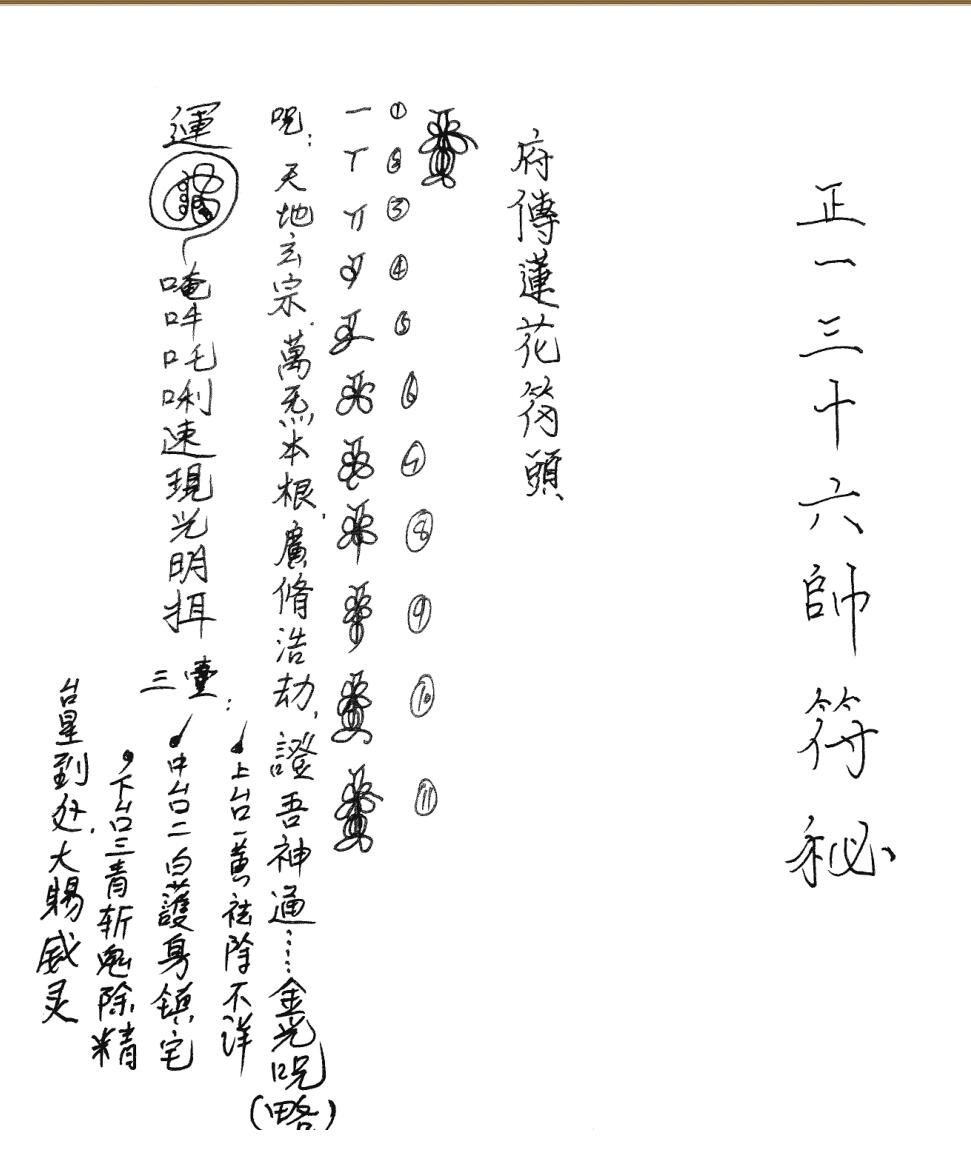 正一三十六帥符秘
府傳蓮花符頭
① ② ③ ④ ⑤ ⑥ ⑦ ⑧ ⑨ ⑩ ⑪
呪：天地玄宗，萬炁本根，廣脩浩劫，證吾神通……金光呪(略)
運
唵吽吒唎速現光明
三臺：
上台一黃祛除不洋
中台二白護身鎮宅
下台三青斩鬼除精
台星到处，大賜威灵